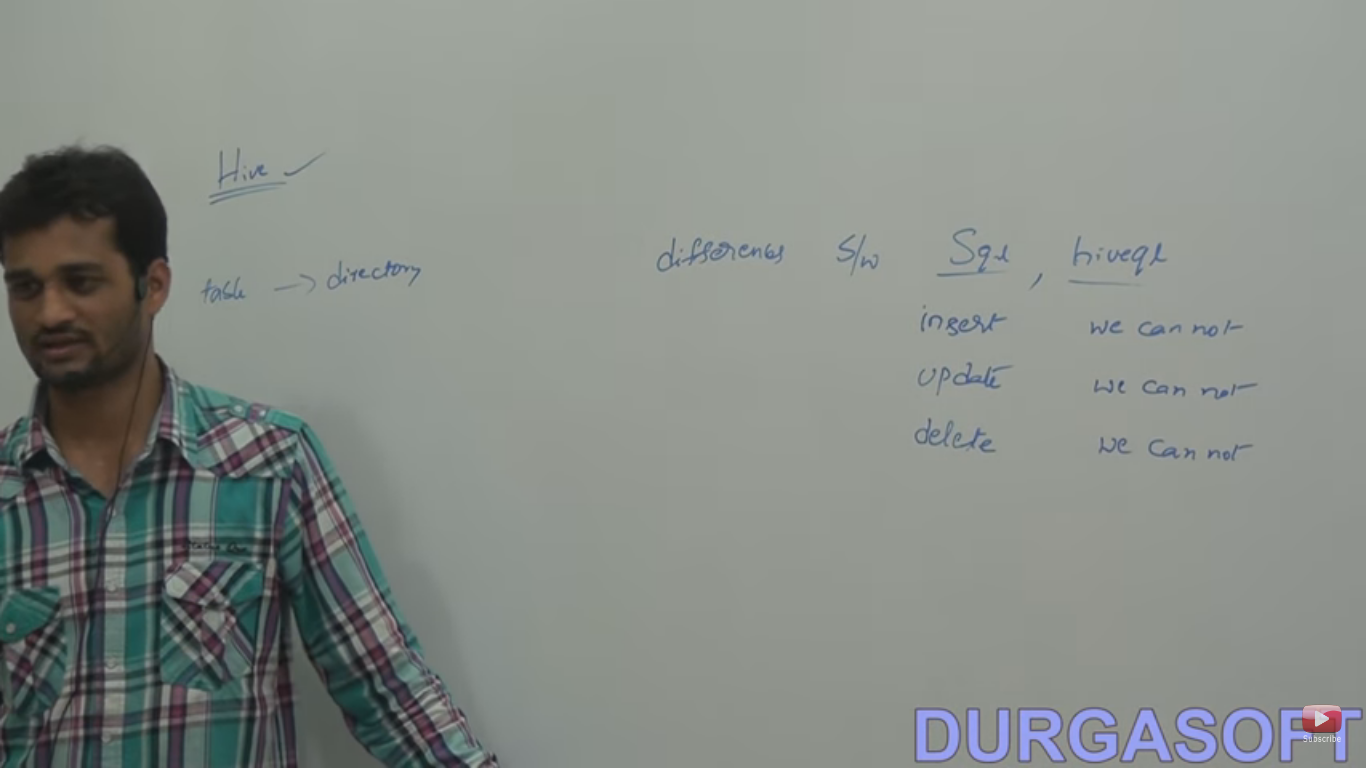 Hive
table → directory
differences b/w Sql , hiveql
insert we can not
update we can not
delete we can not
DURGASOFT
Subscribe